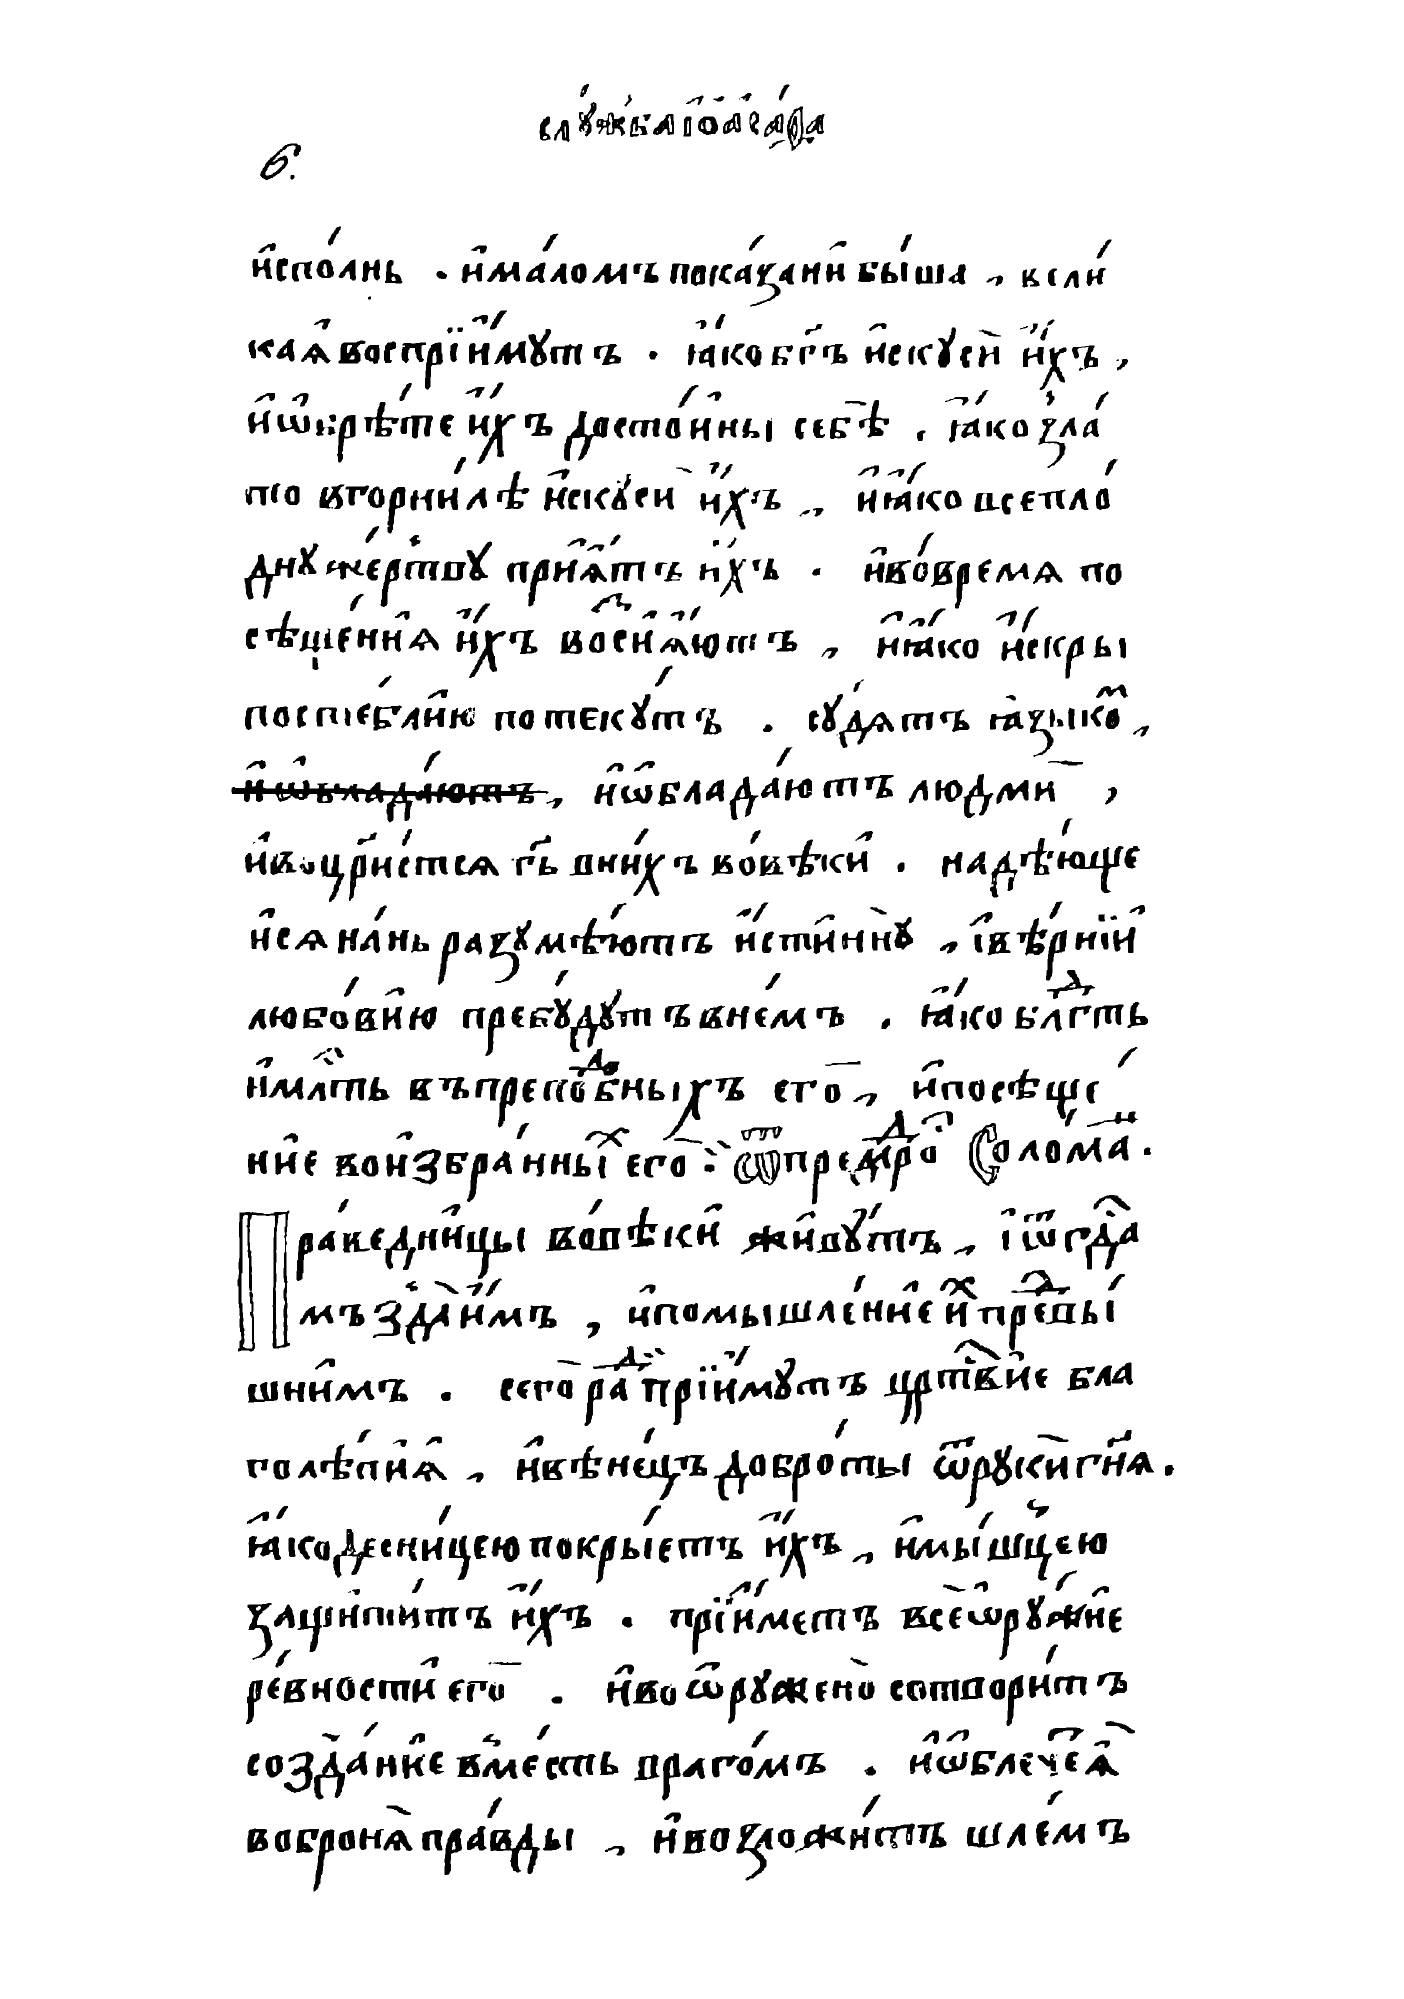 слꙋ́жба і҆ѡаса́фа
6.
и҆спо́лнь . и҆ма́ломъ пока́зани бы́ша , вєли́
каѧ҆ воспрїи҆́мꙋтъ . ꙗ҆́ко бг҃ъ и҆скꙋсѝ и҆́хъ ,
и҆ѡ҆брѣ́те и҆́хъ досто́и҆ны себѣ̀ . ꙗ҆́ко зла́
то вгорни́лѣ и҆скꙋ́си и҆́хъ , и҆ꙗ҆́ко всепло́
днꙋ же́ртвꙋ приѧ҆́тъ и҆́хъ . и҆во́время по
сѣще́ниѧ и҆́хъ восиѧ҆́ютъ , и҆ꙗ҆́ко и҆́скры
постє́блию потекꙋ́тъ . сꙋ́дѧтъ ꙗ҆зыкоⷨ ,
и҆ѡ҆блада́ютъ , и҆ѡ҆блада́ютъ людмѝ ,
и҆воцр҃и́тсѧ гд҃ь вни́хъ во́вѣки . надѣ́юще
и҆сѧ на́нь разꙋмѣ́ютъ и҆́стиннꙋ , і҆вѣ́рнїи
любо́вию пребꙋ́дꙋтъ вне́мъ . ꙗ҆́ко блгⷣть
и҆млⷭ҇ть въпрепоⷣбныхъ его̀ , и҆посѣще́
ние воизбра́нныⷯ его̀ : ѿ премⷣро Соло́маⷩ .
Пра́ведницы во́вѣки живꙋ́тъ , і҆ѿгдⷭ҇а
мъзда̀ и҆́мъ , и҆помышле́ние и҆ⷯ преⷣвы́
шнимъ . сего̀ раⷣ прїи҆́мꙋтъ црⷭ҇твие бла
голѣ́пиѧ , и҆вѣне́цъ добро́ты ѿрꙋкѝ гн҃ѧ .
ꙗ҆́ко десни́цею покры́етъ и҆́хъ , и҆мы́шцею
защити́тъ и҆́хъ . прїи҆́метъ всеѡрꙋ́жие
ре́вности его̀ . и҆воѡ҆рꙋженѡ̀ сотвори́тъ
созда́ние вме́сть враго́мъ . и҆ѡ҆блече́сѧ
вобронѧ̀ пра́вды , и҆возложи́тъ шле́мъ